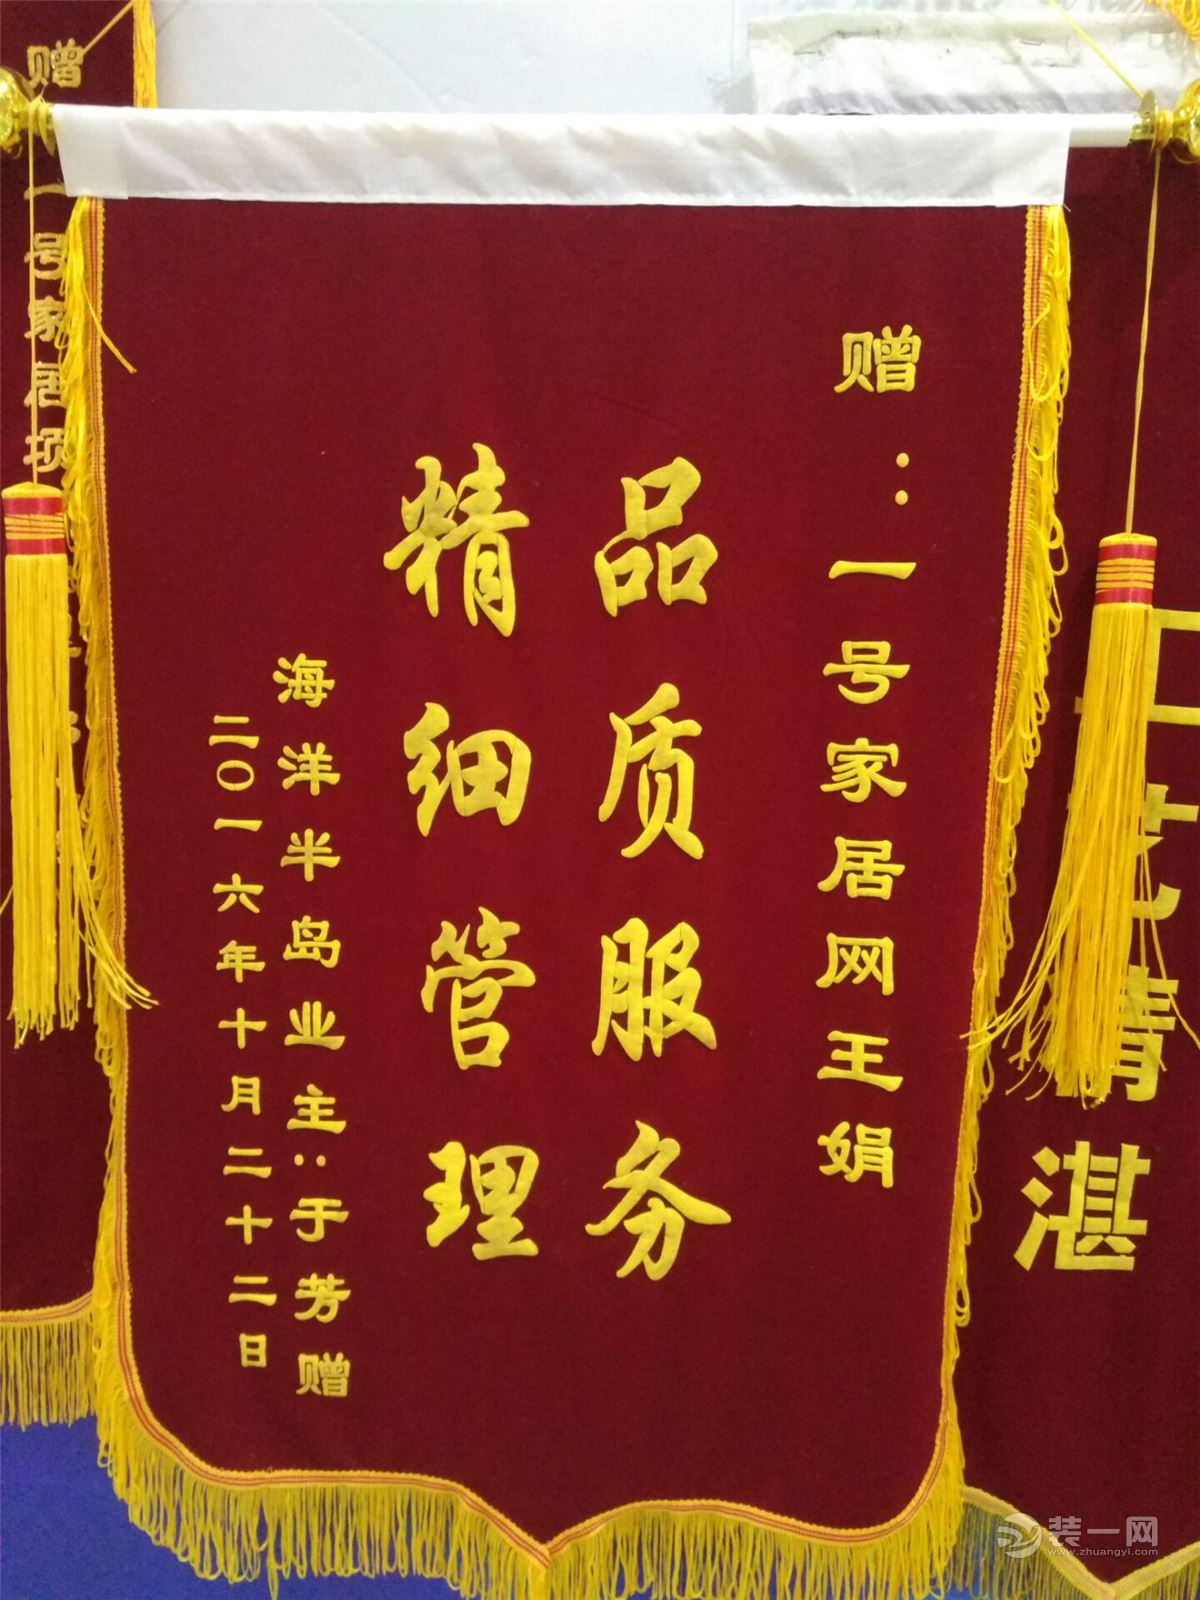 赠：一号家居网王娟
品质服务
精细管理
海洋半岛业主：于芳赠
二〇一六年十月二十二日
赠
一号家居项
精湛
装一网
www.zhuangyi.com